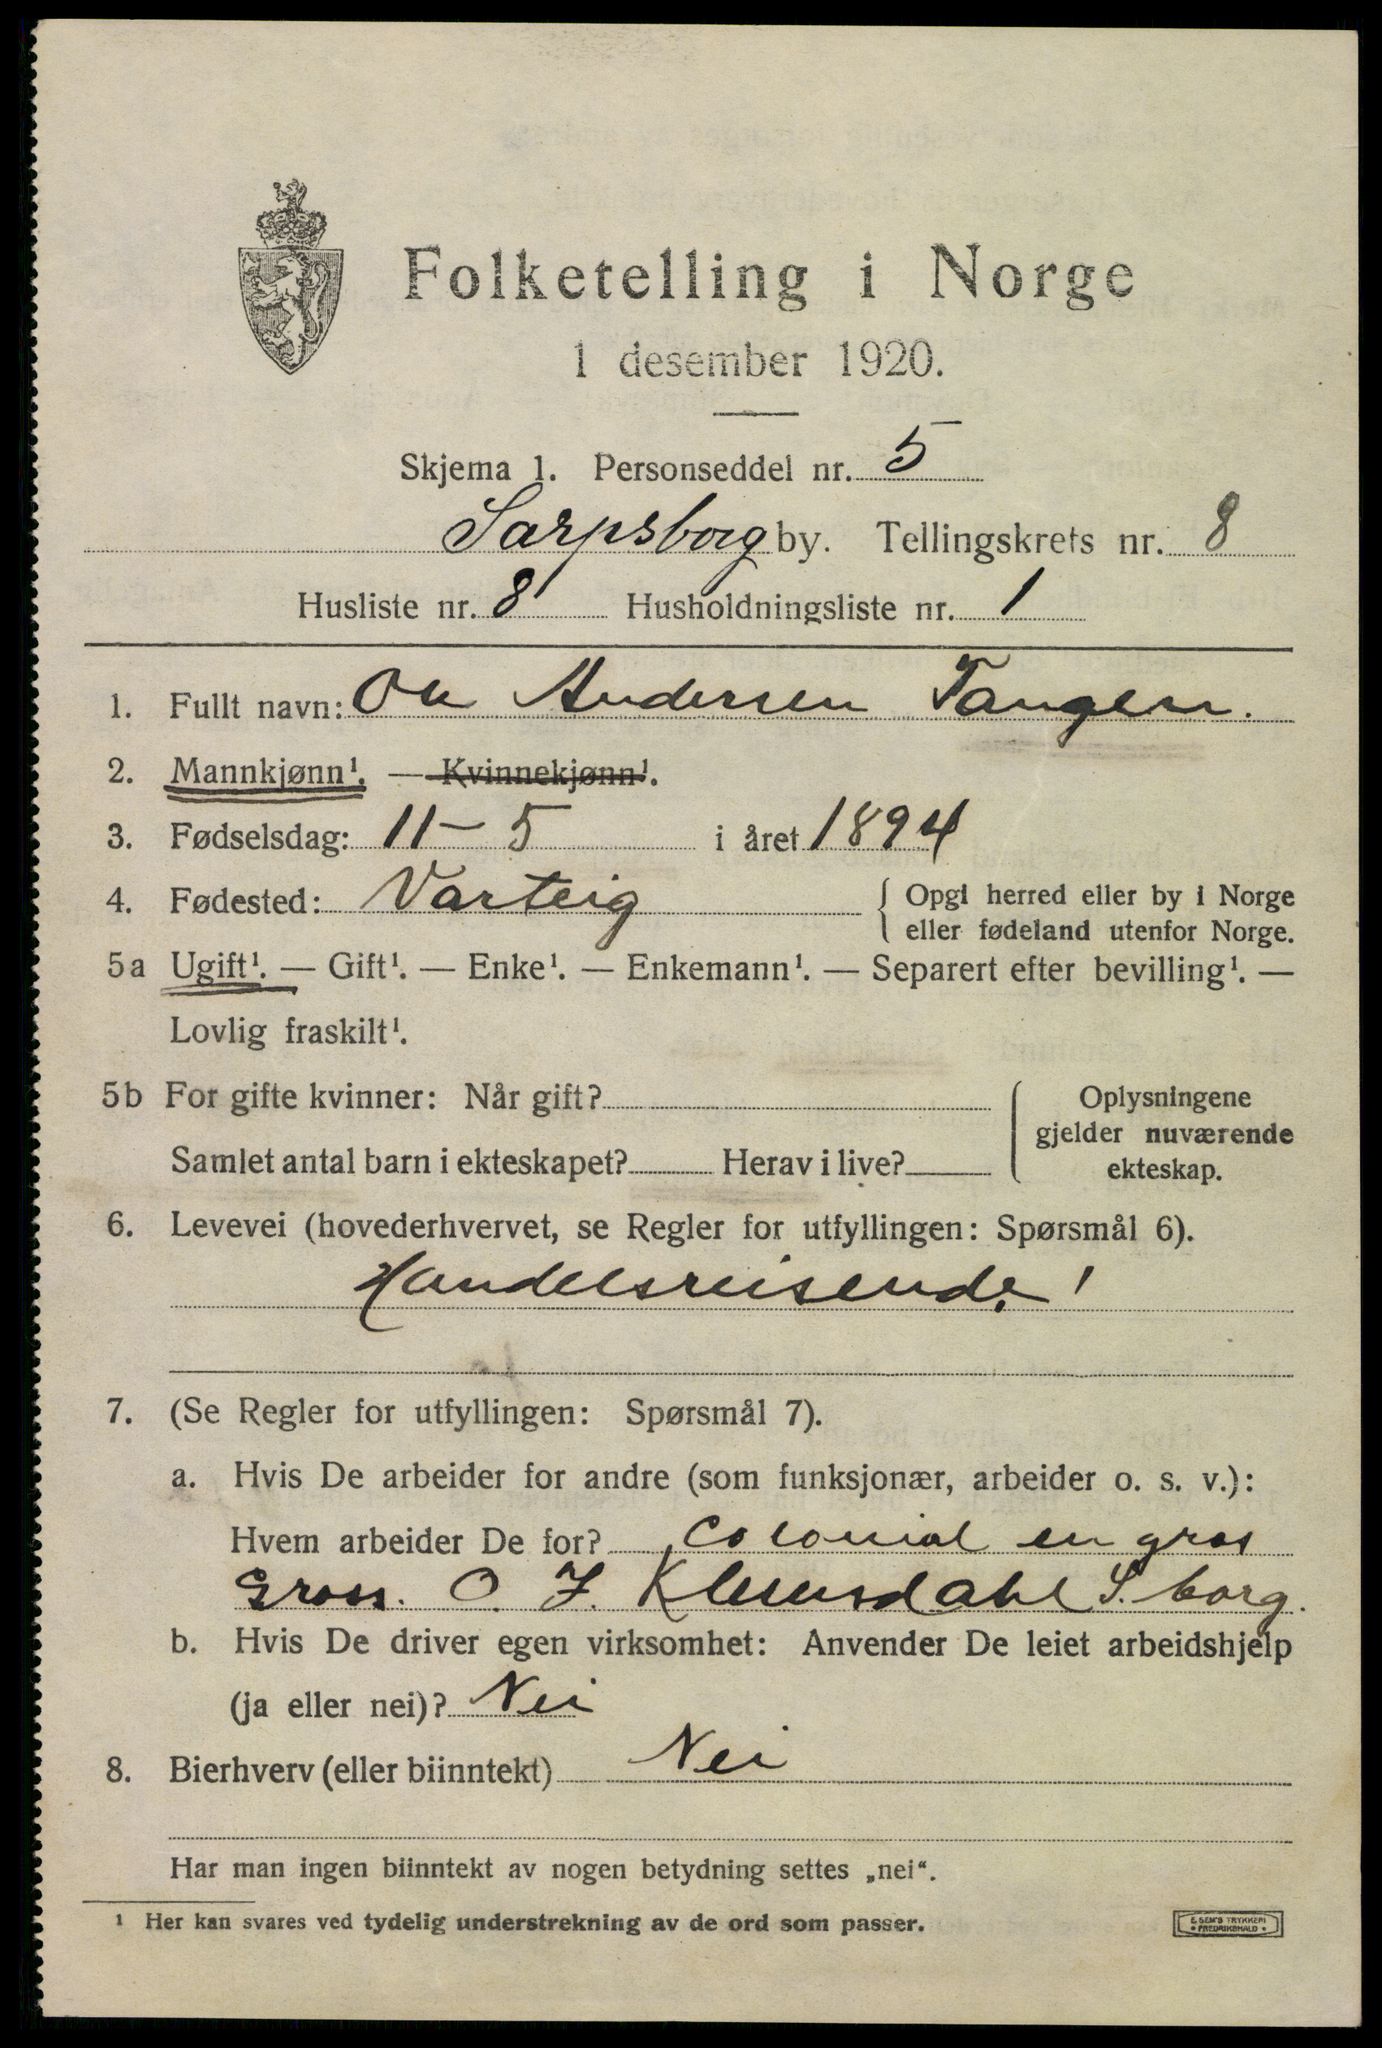 Folketelling i Norge
1 desember 1920.
Skjema 1. Personseddel nr. 5
Sarpsborg by. Tellingskrets nr. 8
Husliste nr. 8 Husholdningsliste nr. 1
1. Fullt navn: Ole Andersen Tangen.
2. Mannkjønn¹. — Kvinnekjønn¹.
3. Fødselsdag: 11-5 i året 1894
4. Fødested: Varteig { Opgi herred eller by i Norge
eller fødeland utenfor Norge.
5a Ugift¹. — Gift¹. — Enke¹. — Enkemann¹. — Separert efter bevilling¹. —
Lovlig fraskilt¹.
5b For gifte kvinner: Når gift? Oplysningene
gjelder nuværende
Samlet antal barn i ekteskapet? Herav i live? ekteskap.
6. Levevei (hovederhvervet, se Regler for utfyllingen: Spørsmål 6).
Handelsreisende!
7. (Se Regler for utfyllingen: Spørsmål 7).
a. Hvis De arbeider for andre (som funksjonær, arbeider o. s. v.):
Hvem arbeider De for? colonial en gros
Gross. O. J. Klemsdahl S.borg.
b. Hvis De driver egen virksomhet: Anvender De leiet arbeidshjelp
(ja eller nei)? Nei
8. Bierhverv (eller biinntekt) Nei
Har man ingen biinntekt av nogen betydning settes „nei“.
¹ Her kan svares ved tydelig understrekning av de ord som passer.
E. SEM'S TRYKKERI
• FREDRIKSHALD •